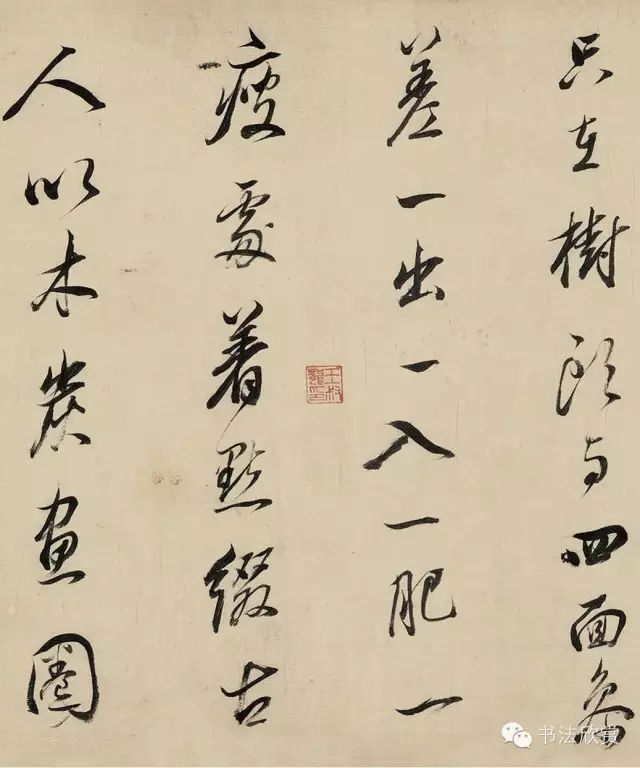 只在樹頭与四面參
差一出一入一肥一
瘦處着點綴古
人以木炭畫圈
书法欣赏